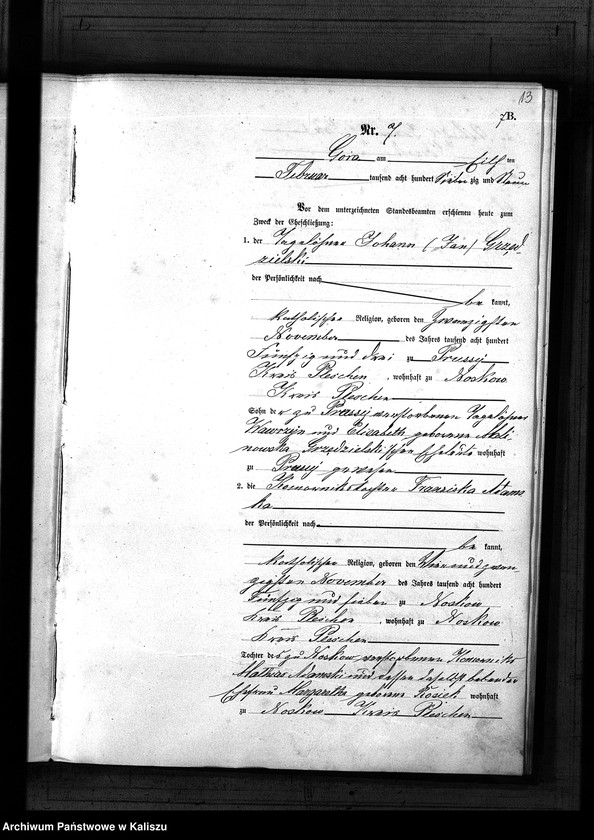 13
7B.
Nr. 7.
Gora am Eilf ten
Februar tausend acht hundert Sieben zig und Neun
Vor dem unterzeichneten Standesbeamten erschienen heute zum
Zweck der Eheschließung:
1. der Tagelöhner Johann (Jan) Grzęd-
zielski
der Persönlichkeit nach
be kannt,
katholischer Religion, geboren den Zwanzigsten
November des Jahres tausend acht hundert
Fünfzig und drei zu Prussy
Kreis Pleschen, wohnhaft zu Noskow
Kreis Pleschen
Sohn der zu Prussy verstorbenen Tagelöhner
Wawrzyn und Elisabeth geborene Mali
nowska Grzędzielski'schen Eheleute wohnhaft
zu Prussy gewesen
2. die Komornikstochter Franziska Adams
ka
der Persönlichkeit nach
be kannt,
katholischer Religion, geboren den Vierundzwan-
zigsten November des Jahres tausend acht hundert
Fünfzig und sieben zu Noskow
Kreis Pleschen, wohnhaft zu Noskow
Kreis Pleschen
Tochter des zu Noskow verstorbenen Komorniks
Mathias Adamski und dessen daselbst lebender
Ehefrau Margaretha geborene Kosick wohnhaft
zu Noskow Kreis Pleschen
Archiwum Państwowe w Kaliszu